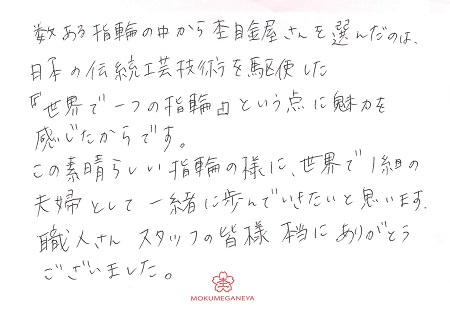 数ある指輪の中から杢目金屋さんを選んだのは、
日本の伝統工芸技術を駆使した
『世界で一つの指輪』という点に魅力を
感じたからです。
この素晴らしい指輪の様に、世界で1組の
夫婦として一緒に歩んでいきたいと思います。
職人さん スタッフの皆様 本当にありがとう
ございました。
MOKUMEGANEYA